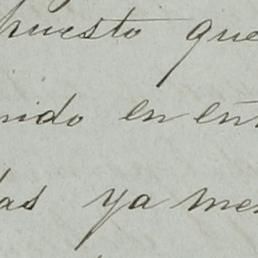 puesto que
nido en en
las ya me